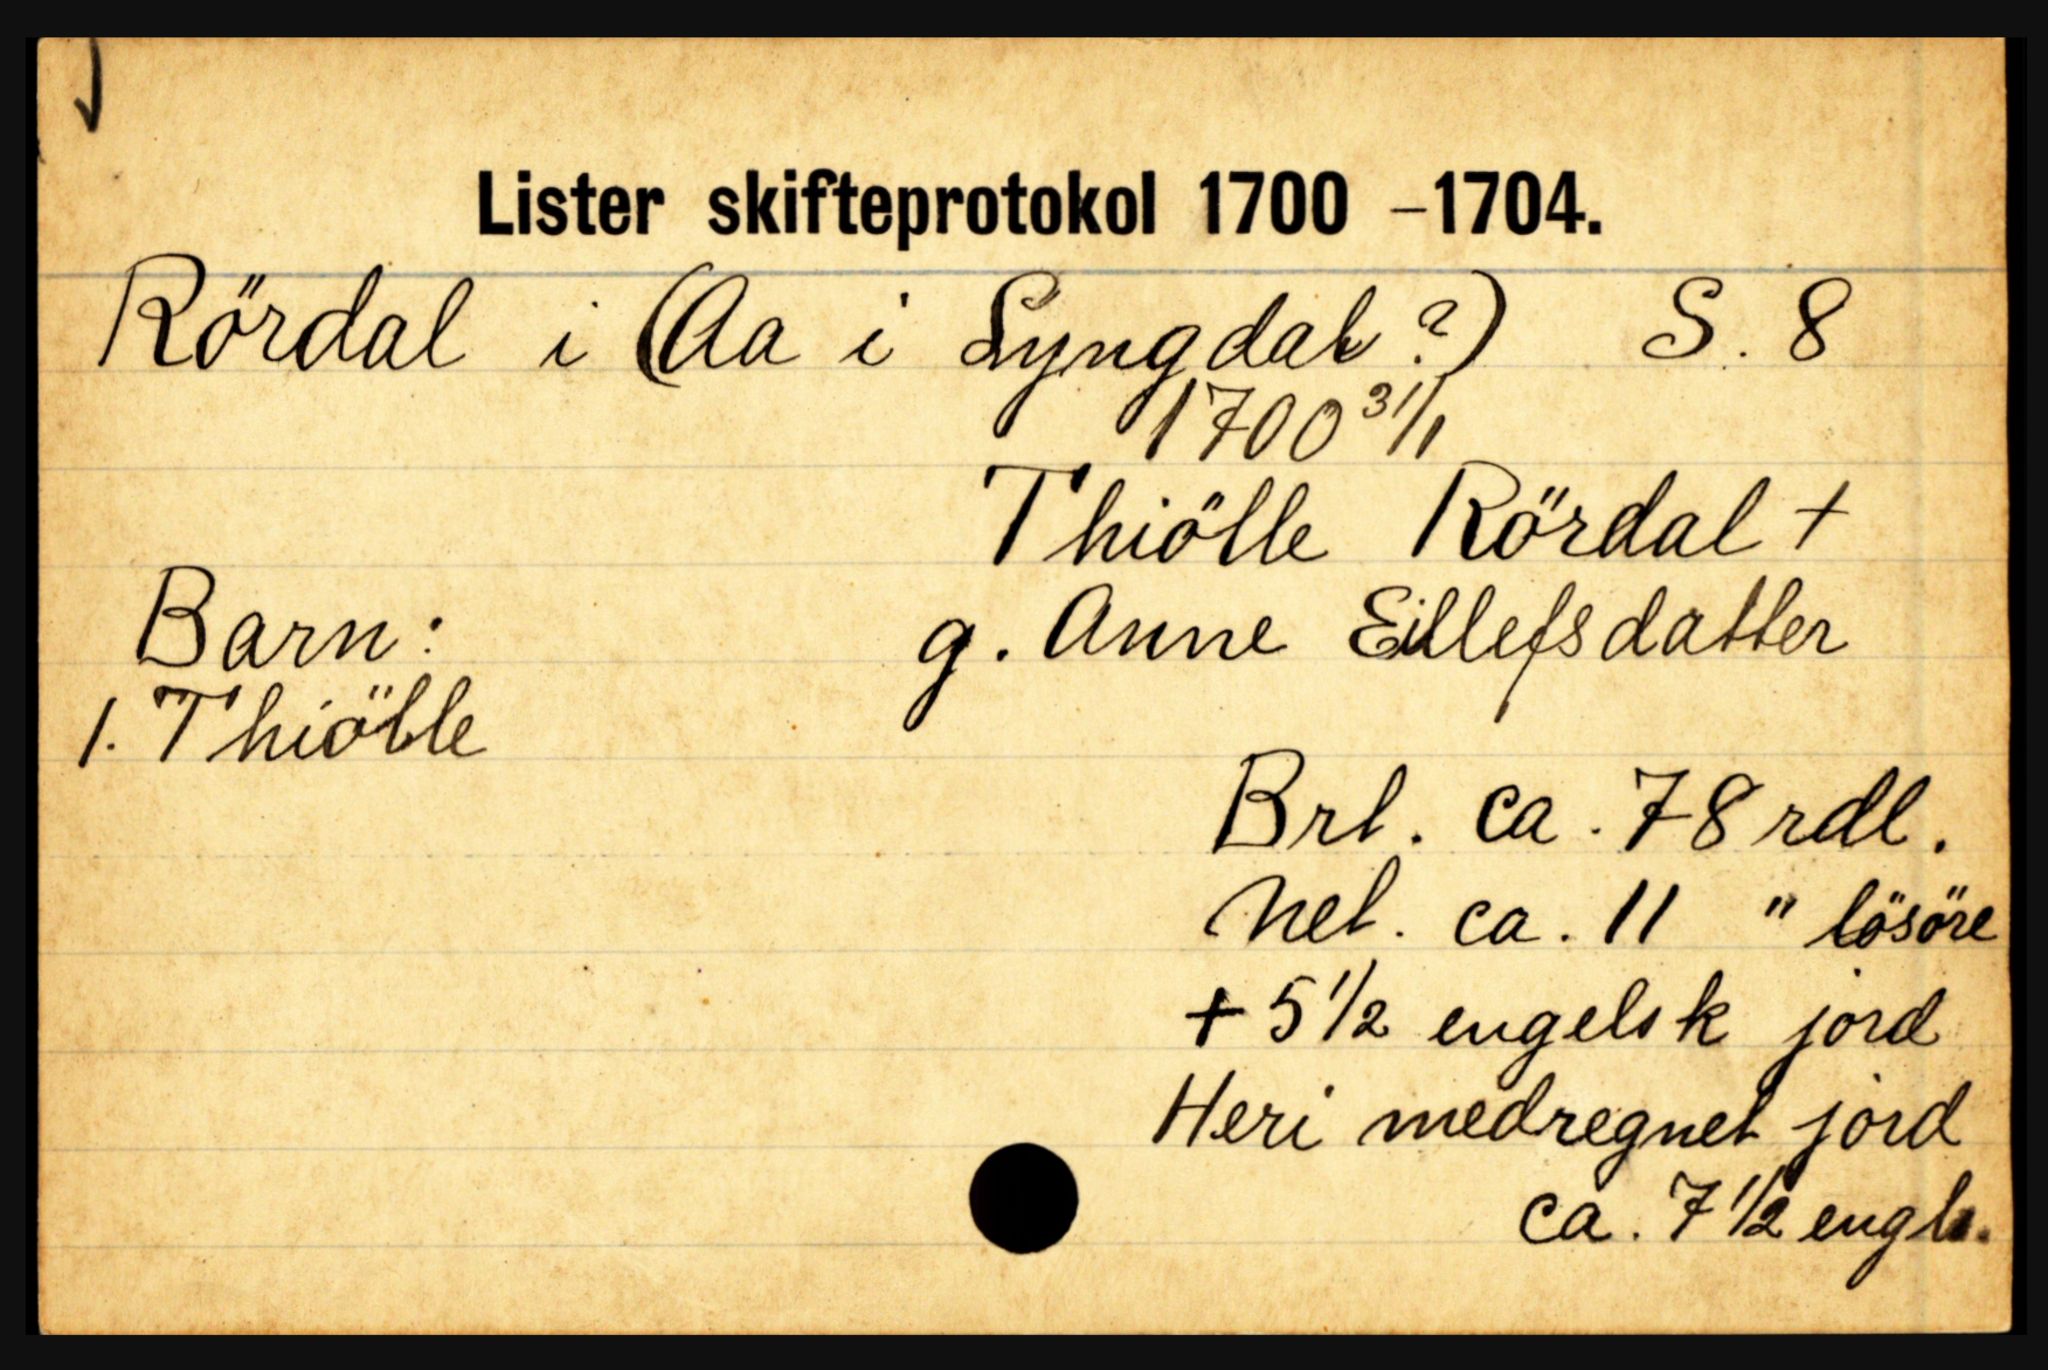 Lister skifteprotokol 1700 -1704.
Rördal i (Aa i Lyngdal?) S. 8
1700 31/1
Thiölle Rördal +
Barn: g. Anne Eillefsdatter
1. Thiölle
Brt. ca. 78 rdl.
Net. ca. 11 " lösöre
+ 5 1/2 engelsk jord
Heri medregnet jord
ca. 7 1/2 engls.